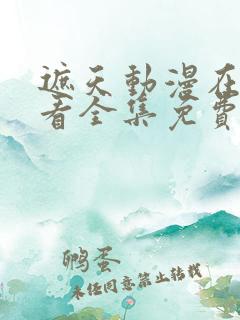 遮天動漫在
看全集免費
鹏蛋
未经同意禁止转载